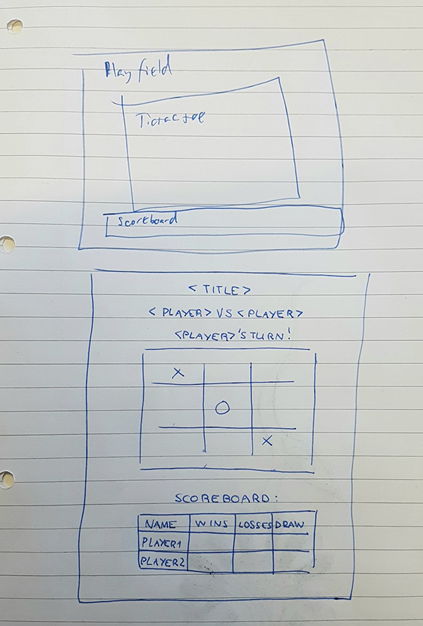 Play field
Tictactoe
Scoreboard
<TITLE>
<PLAYER> VS <PLAYER>
<PLAYER>'S TURN!
X
O
X
SCOREBOARD:
NAME WINS LOSSES DRAW
PLAYER1
PLAYER2